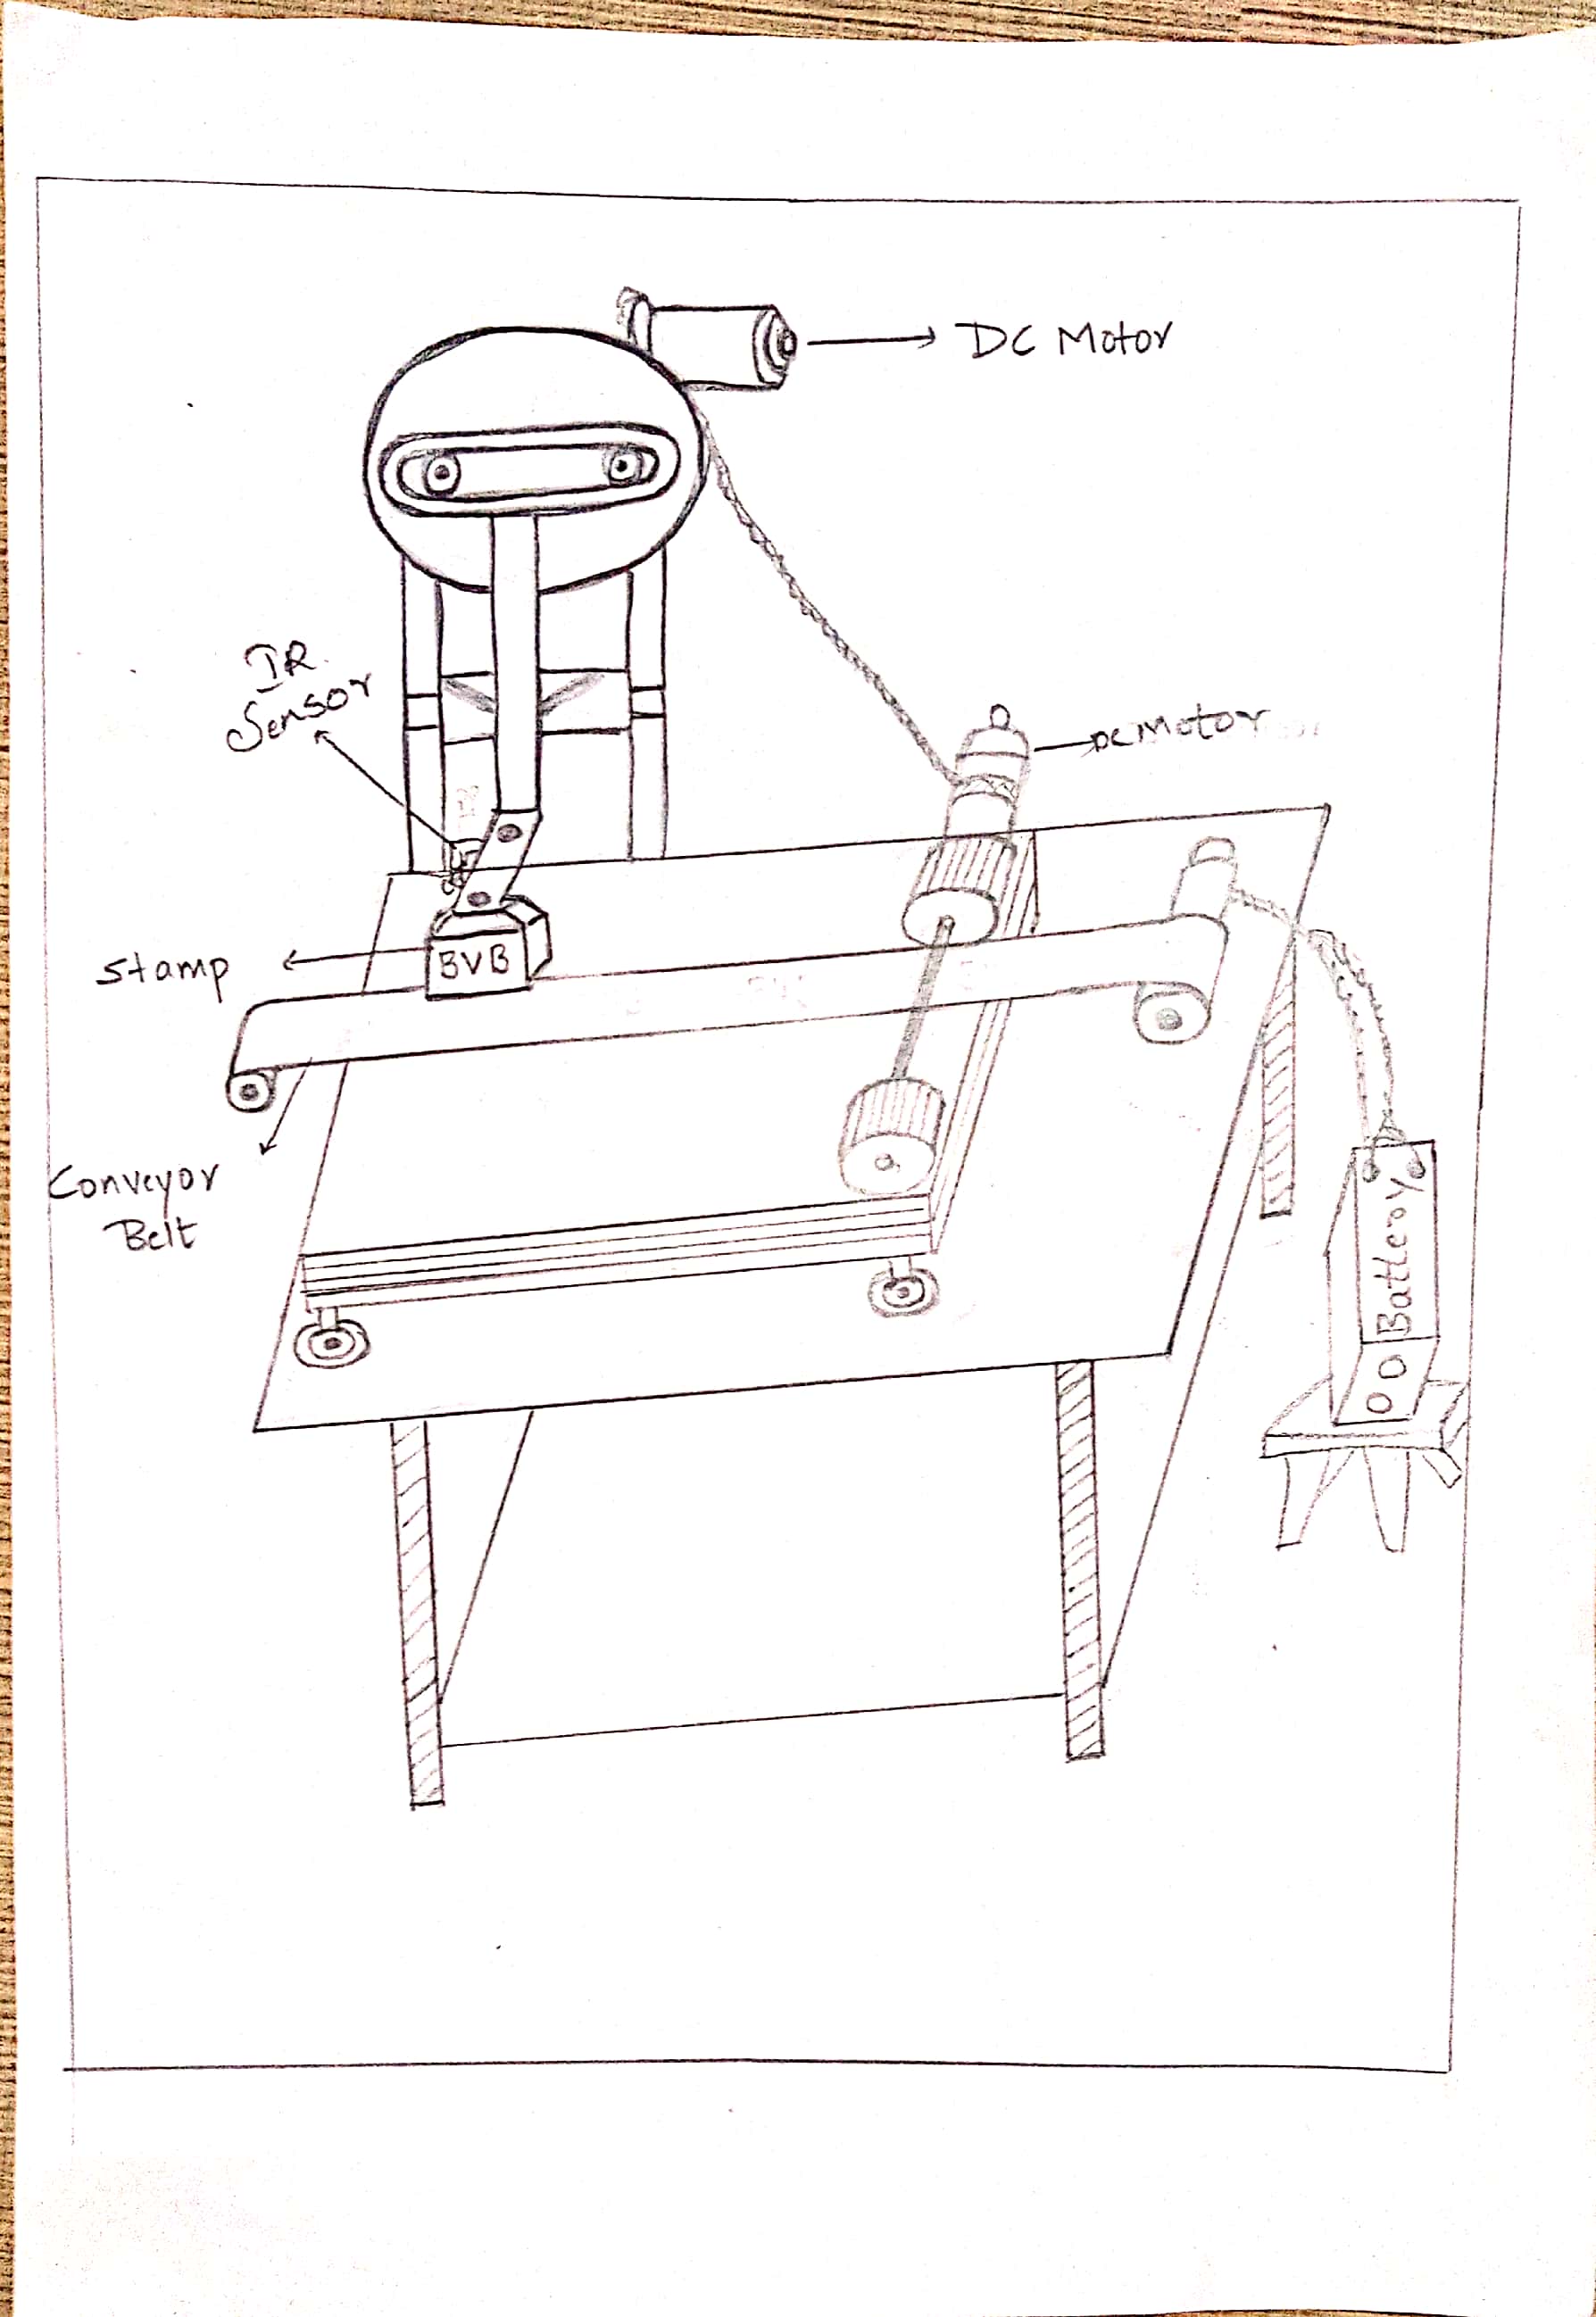 DC Motor
IR
Sensor
DC Motor
Stamp
BVB
Conveyor
Belt
Battery